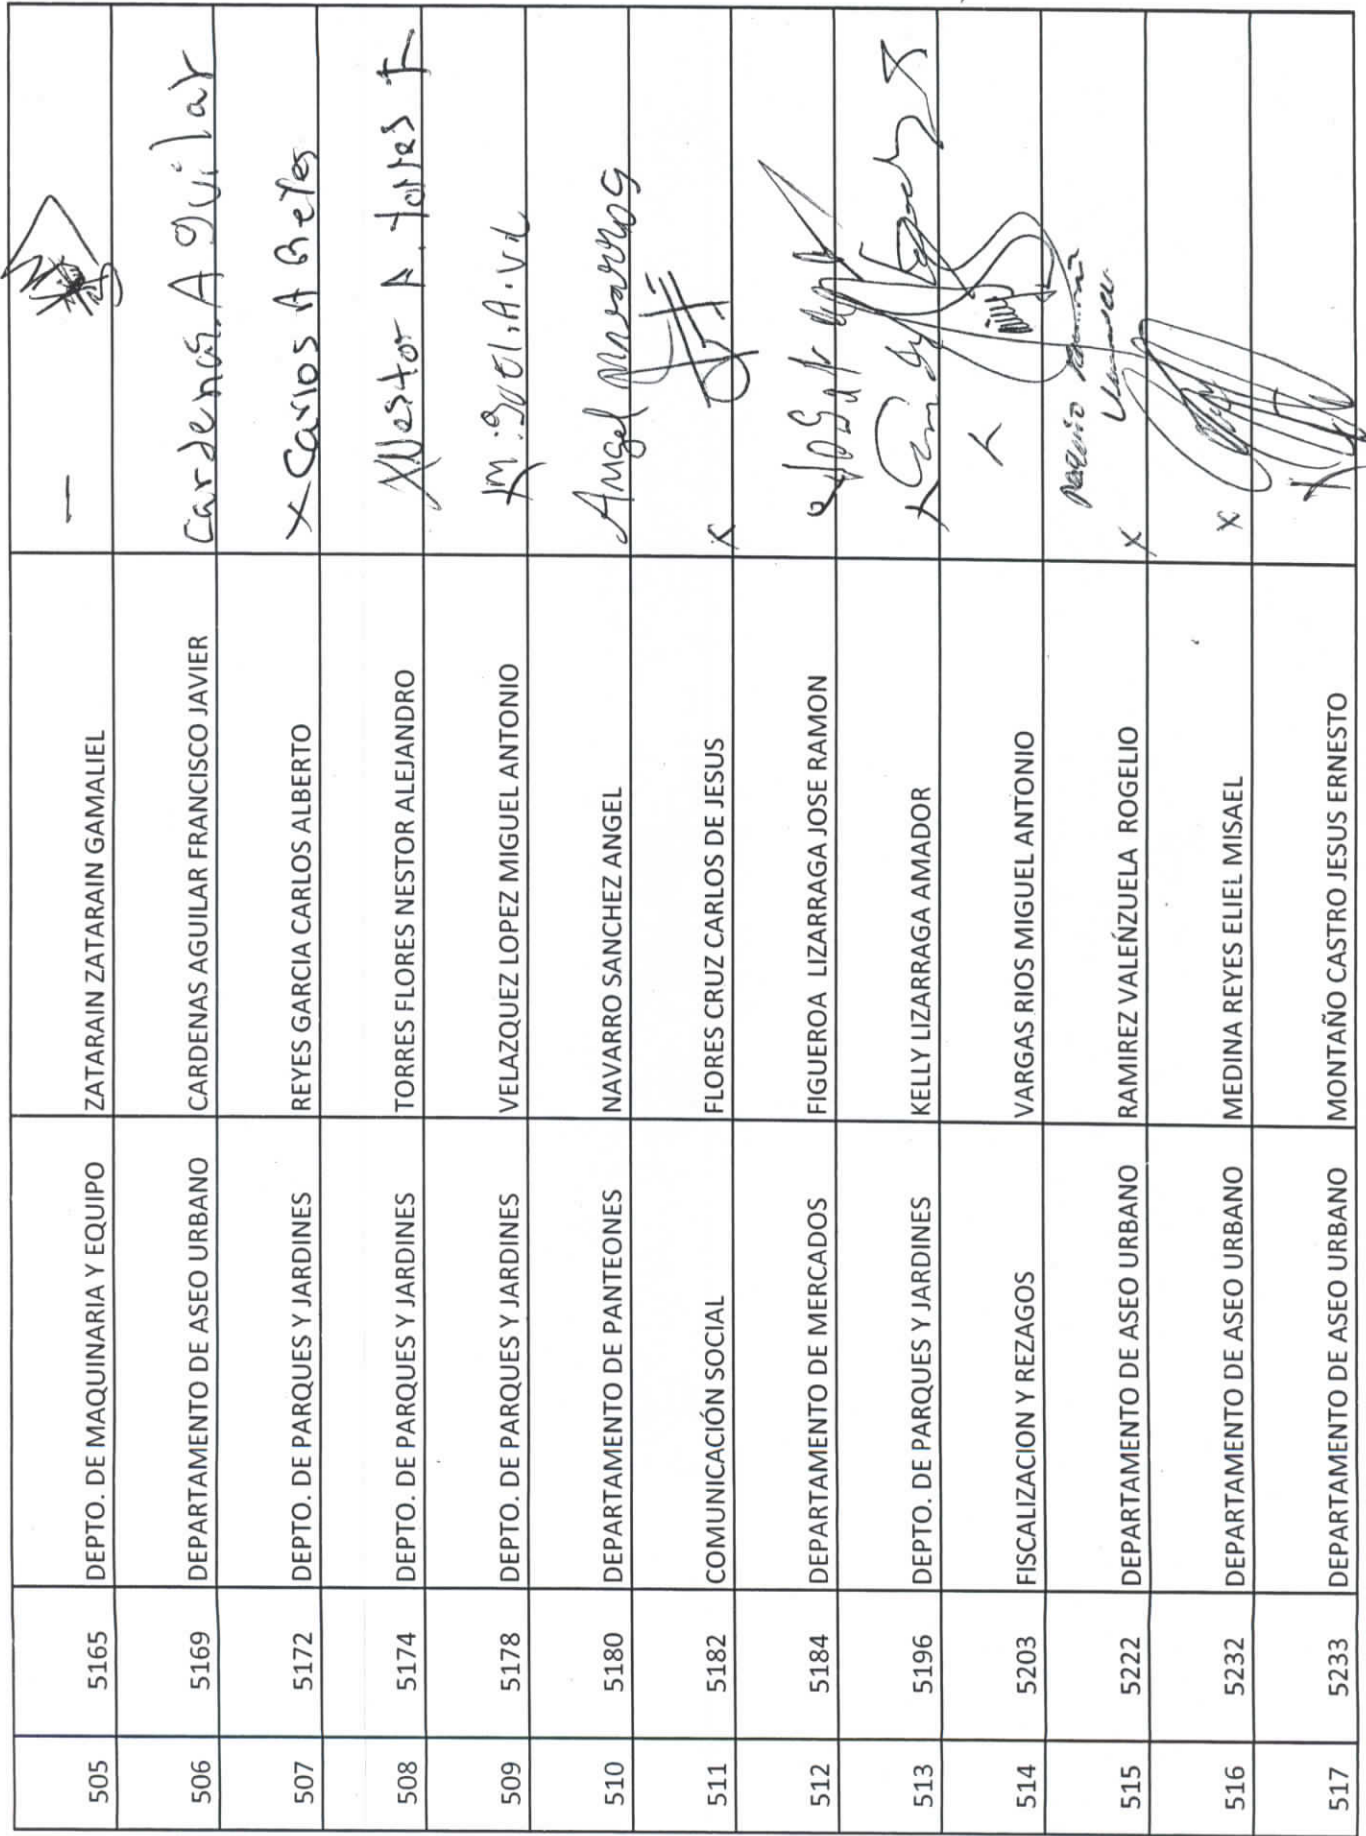 505 5165 DEPTO. DE MAQUINARIA Y EQUIPO ZATARAIN ZATARAIN GAMALIEL
506 5169 DEPARTAMENTO DE ASEO URBANO CARDENAS AGUILAR FRANCISCO JAVIER Cardenas. Aguilar
507 5172 DEPTO. DE PARQUES Y JARDINES REYES GARCIA CARLOS ALBERTO x Carlos A Reyes
508 5174 DEPTO. DE PARQUES Y JARDINES TORRES FLORES NESTOR ALEJANDRO x Nestor A. torres F
509 5178 DEPTO. DE PARQUES Y JARDINES VELAZQUEZ LOPEZ MIGUEL ANTONIO
510 5180 DEPARTAMENTO DE PANTEONES NAVARRO SANCHEZ ANGEL Angel navarro S
511 5182 COMUNICACIÓN SOCIAL FLORES CRUZ CARLOS DE JESUS x
512 5184 DEPARTAMENTO DE MERCADOS FIGUEROA LIZARRAGA JOSE RAMON
513 5196 DEPTO. DE PARQUES Y JARDINES KELLY LIZARRAGA AMADOR
514 5203 FISCALIZACION Y REZAGOS VARGAS RIOS MIGUEL ANTONIO
515 5222 DEPARTAMENTO DE ASEO URBANO RAMIREZ VALENZUELA ROGELIO x
516 5232 DEPARTAMENTO DE ASEO URBANO MEDINA REYES ELIEL MISAEL x
517 5233 DEPARTAMENTO DE ASEO URBANO MONTAÑO CASTRO JESUS ERNESTO